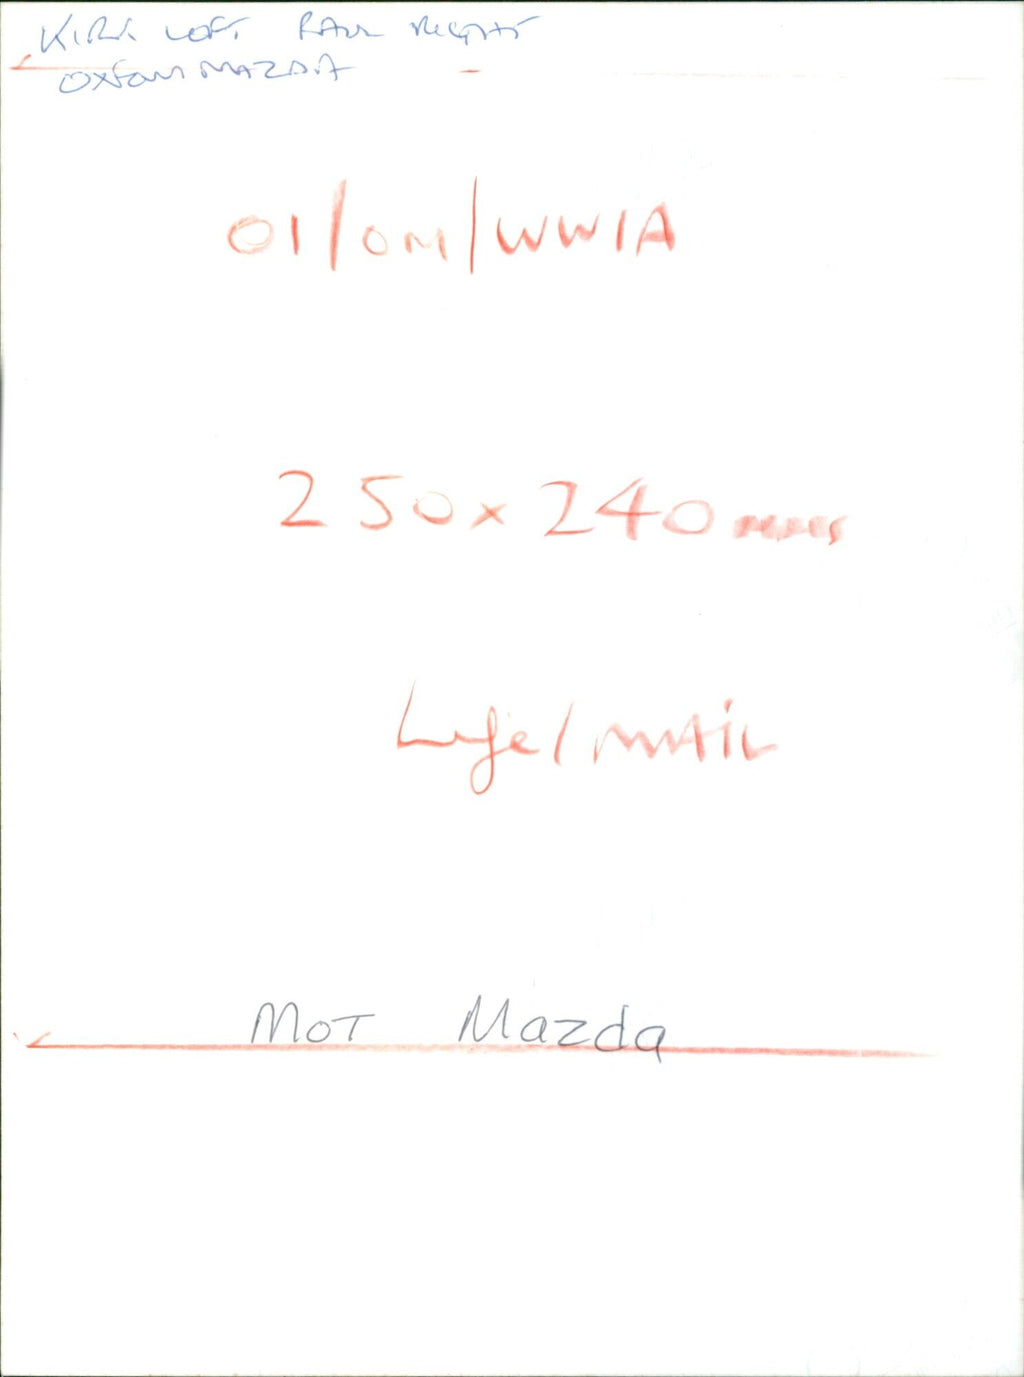 KIRK LEFT PAUL RIGHT
OXFORD MAZDA
01/OM/WW1A
250 x 240 mms
Life/MAIL
MOT Mazda